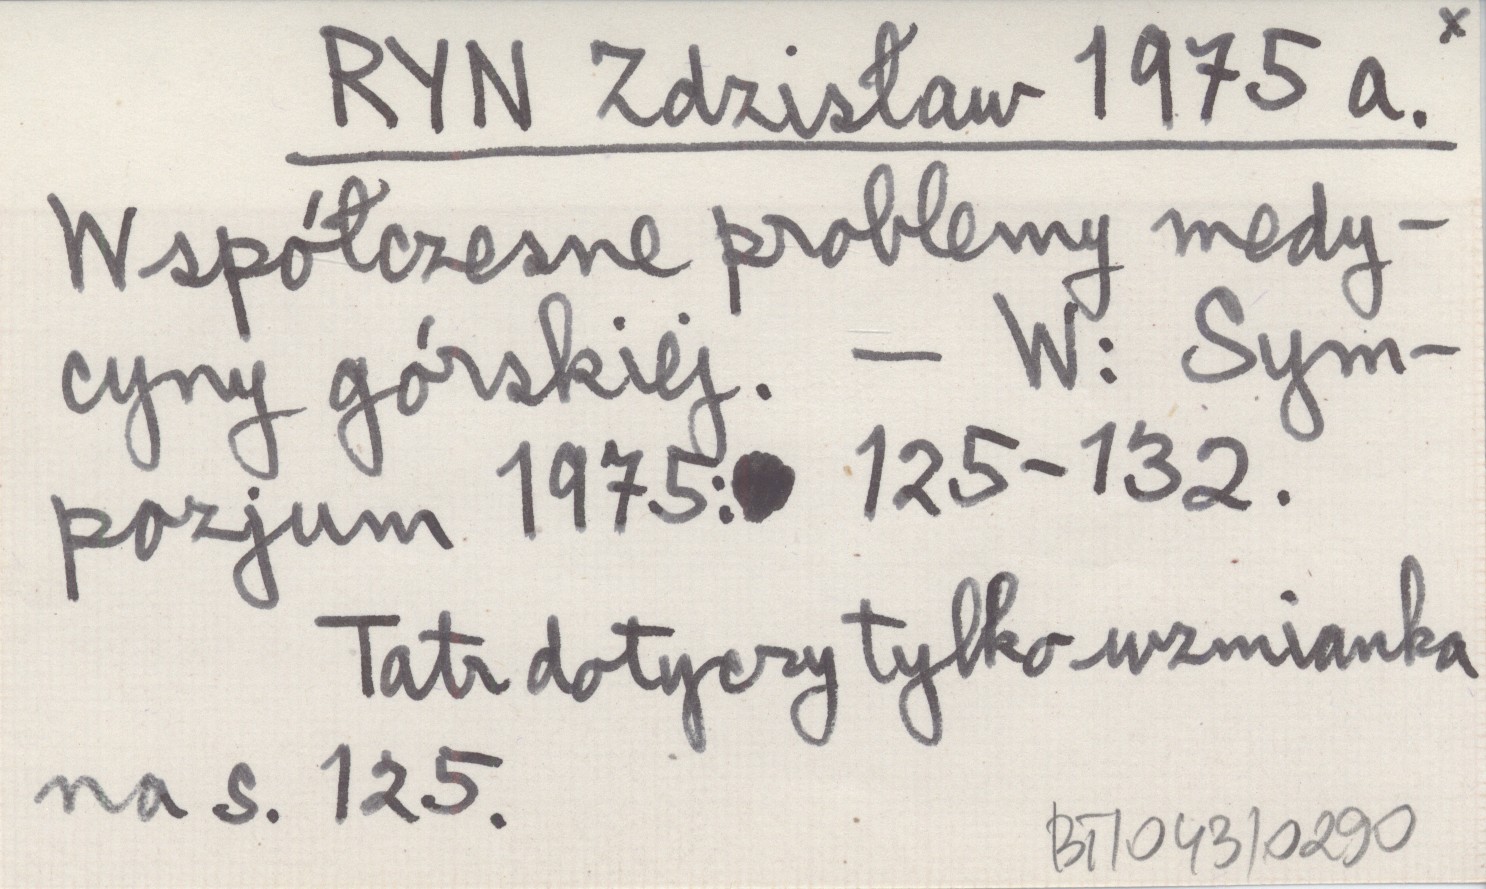 RYN Zdzisław 1975 a. x
Współczesne problemy medy-
cyny górskiej. — W: Sym-
pozjum 1975: 125-132.
Tatr dotyczy tylko wzmianka
na s. 125.
BT/043/0290